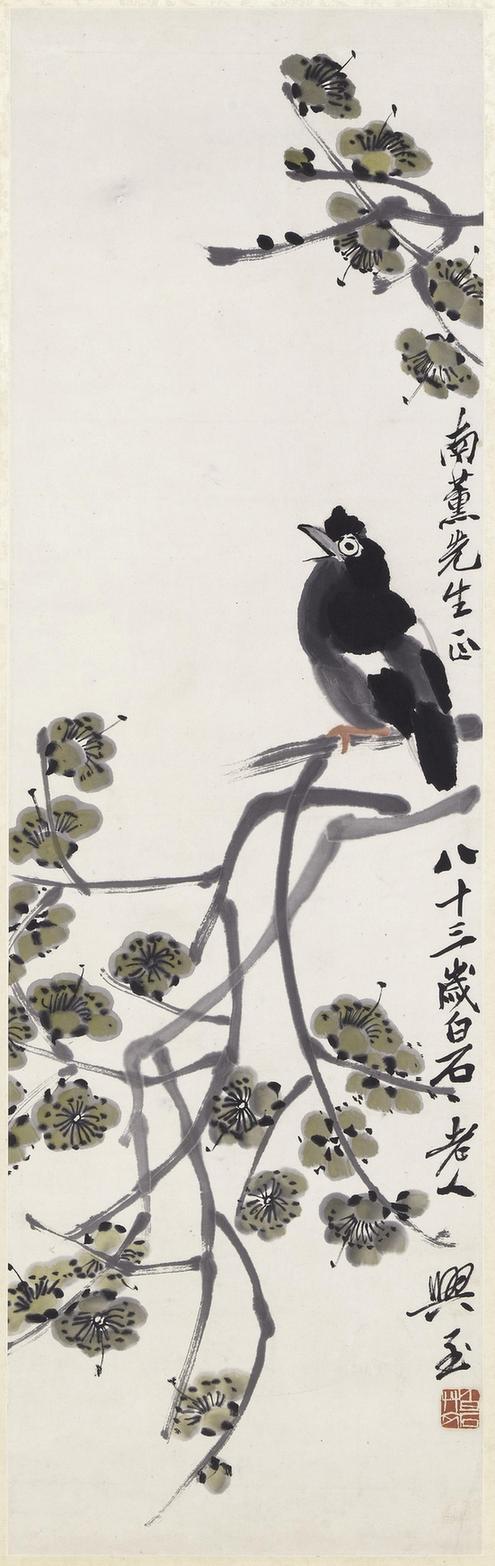 南薰先生正
八十三歲白石老人
興至